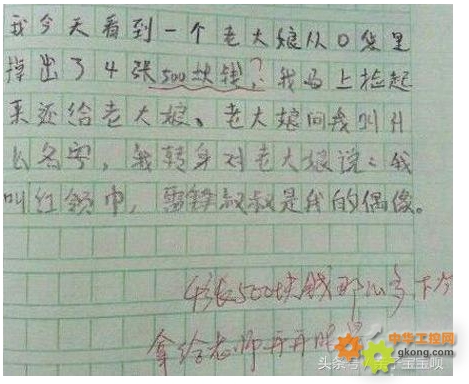 我今天看到一个老大娘从0袋里
掉出了4张500块钱?我马上捡起
来还给老大娘、老大娘问我叫什
么名字,我转身对老大娘说:我
叫红领巾,雷锋叔叔是我的偶像。
4张500块钱那么多下次
拿给老师再再
中华工控网
gkong.com
头条号 宝宝呗